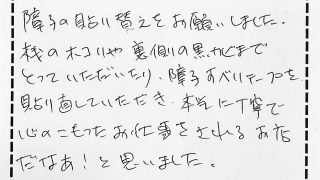 障子の貼り替えをお願いしました。
桟のホコリや裏側の黒カビまで
とっていただいたり、障子すべりテープを
貼り直していただき、本当に丁寧で
心のこもったお仕事をされるお店
だなあ!と思いました。